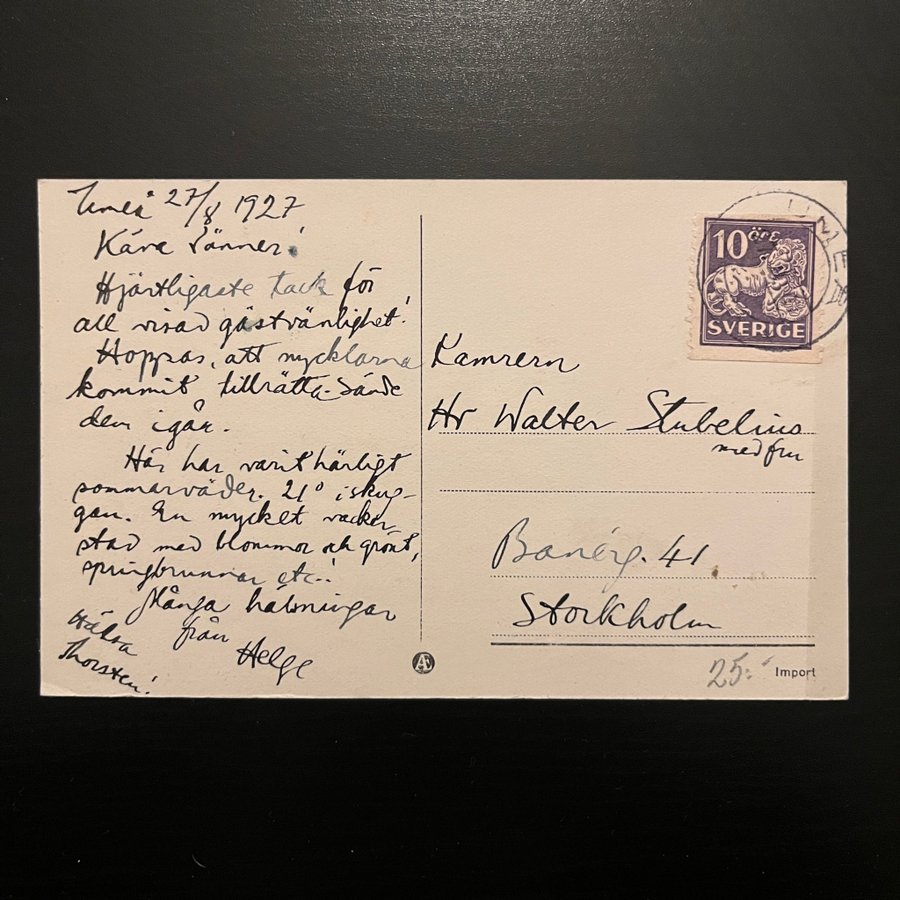 Umeå 27/8 1927
Kära Vänner!
Hjärtligaste tack för
all visad gästvänlighet!
Hoppas, att nycklarna
kommit tillrätta. Sände
dem igår.
Här har varit härligt
sommarväder. 21° i skug-
gan. En mycket vacker
stad med blommor och grönt,
springbrunnar etc.
Många hälsningar
från
Helge
Hälsa
Thorsten!
10 öre
SVERIGE
UMEÅ
Kamrern
Hr Walter Stubelius
med fru
Banérg. 41
Stockholm
25:-
Import